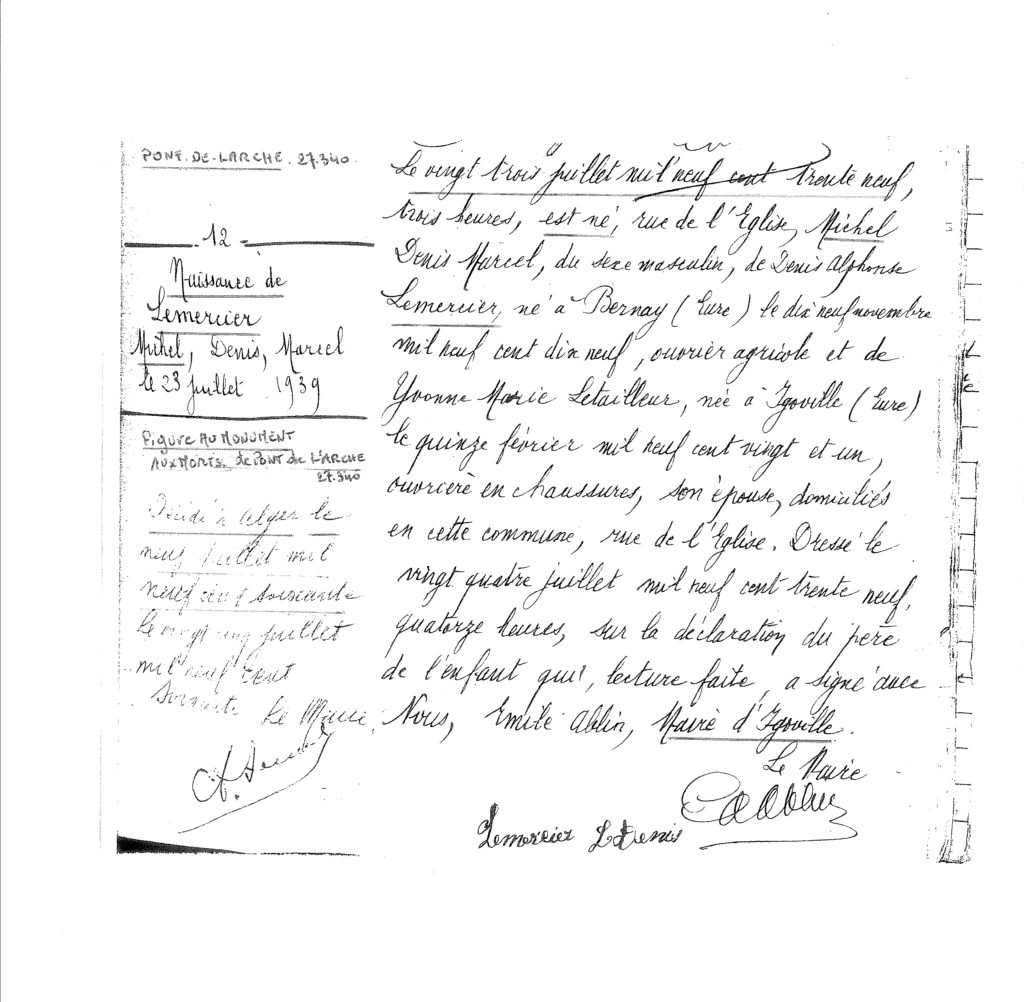 PONT-DE-LARCHE. 27.340
12
Naissance de
Lemercier
Michel, Denis, Marcel
le 23 juillet 1939
Figure AU MONUMENT
AUX MORTS de PONT de L'ARCHE
27.340
Décédé à Alger le
neuf juillet mil
neuf cent soixante
le vingt cinq juillet
mil neuf cent
soixante Le Maire
Le vingt trois juillet mil neuf cent trente neuf,
trois heures, est né, rue de l'Eglise, Michel
Denis Marcel, du sexe masculin, de Denis Alphonse
Lemercier, né à Bernay (Eure) le dix neuf novembre
mil neuf cent dix neuf, ouvrier agricole et de
Yvonne Marie Letailleur, née à Igoville (Eure)
le quinze février mil neuf cent vingt et un,
ouvrière en chaussures, son épouse, domiciliés
en cette commune, rue de l'Eglise. Dressé le
vingt quatre juillet mil neuf cent trente neuf,
quatorze heures, sur la déclaration du père
de l'enfant qui, lecture faite, a signé avec
Nous, Emile Ablin, Maire d'Igoville.
Le Maire
Lemercier